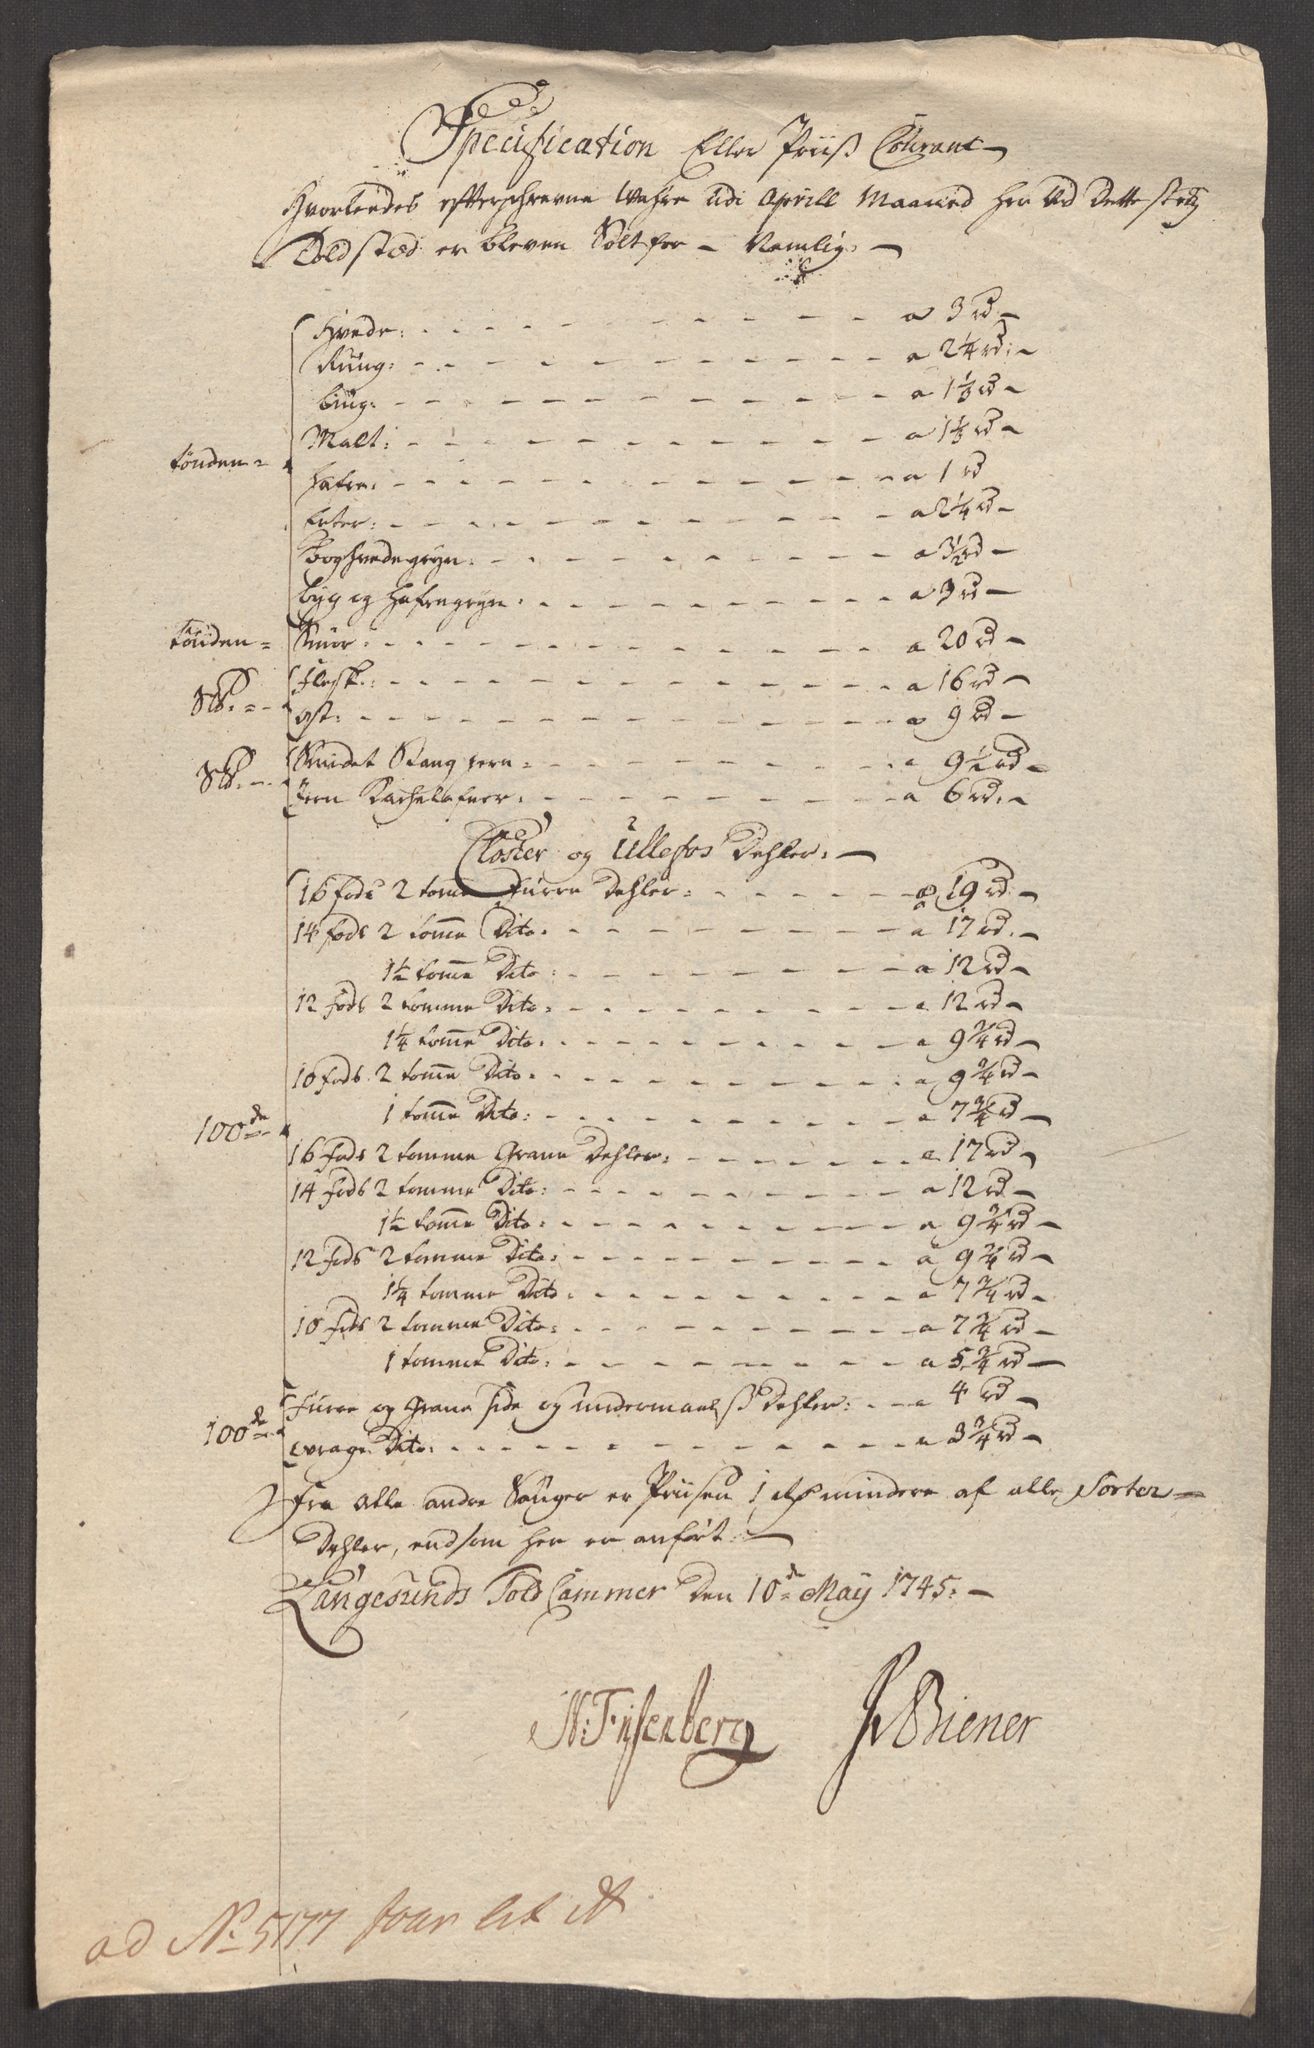 Specification Eller Priiß Courant
Hvorledes efterschrevne Wahre Udi Aprill Maaned her Ved Dette
Told stæd er bleven Solt for - Nemlig:
Hvede: a 3 rd
Rüug: a 2 1/4 rd:
biug: a rd
Malt: a rd
tönden=
hafre: a 1 rd
Erter: a 2 1/4 rd
boghvedegryn: a 3 1/2 rd
byg og hafregryn: a 3 rd
tönden= Smör: a 20 rd
Slb:= flesk: a 16 rd
ost: a 9 rd
Slb: Smidet Stang jern: a 9 1/2 rd
Jern Kachelofner: a 6 rd:
Closter og Ullefos Dehler:
16 fods 2 tome furre Dehler: a 19 rd:
14 fods 2 tome Dito: a 17 rd:
1 1/2 tome Dito: a 12 rd
12 fods 2 tomme Dito: a 12 rd
1 1/4 tome Dito: a 9 3/4 rd
10 fods 2 tome Dito: a 9 3/4 rd
1 tome Dito: a 7 3/4 rd
100de
16 fods 2 tomme Grane Dehler: a 17 rd
14 fods 2 tomme Dito: a 12 rd
1 1/2 tome Dito: a 9 3/4 rd
12 fods 2 tomme Dito: a 9 3/4 rd
1 1/4 tomme Dito: a 7 3/4 rd
10 fods 2 tomme Dito: a 7 3/4 rd
1 tomme Dito: a 5 3/4 rd
furre og Grane side og undermaalß Dehler: a 4 rd
100de
vrage Dito: a 3 3/4 rd
fra alle andre Sauger er Priisen 1 mindere af alle Sorter
Dehler, end som her er anfört:
Langesunds Told Cammer Den 10de May 1745:
N: Tysenberg Biener
ad No 5177 lit A